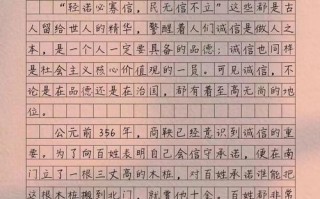 “轻诺必寡信，民无信不立”这些都是古
人留给世人的精华，警醒着人们诚信是做人之
本，是一个人一定要具备的品德；诚信也同样
是社会主义核心价值观的一員。可见诚信，不
论是在品德还是在治国，都有着至高无尚的地
位。
公元前356年，商鞅已经意识到诚信的重
要。为了向百姓表明自己会信守承诺，便在南
门立了一根三丈高的木桩，对百姓承诺谁能把
这根木桩搬到北门，就賞他十金，百姓都非常